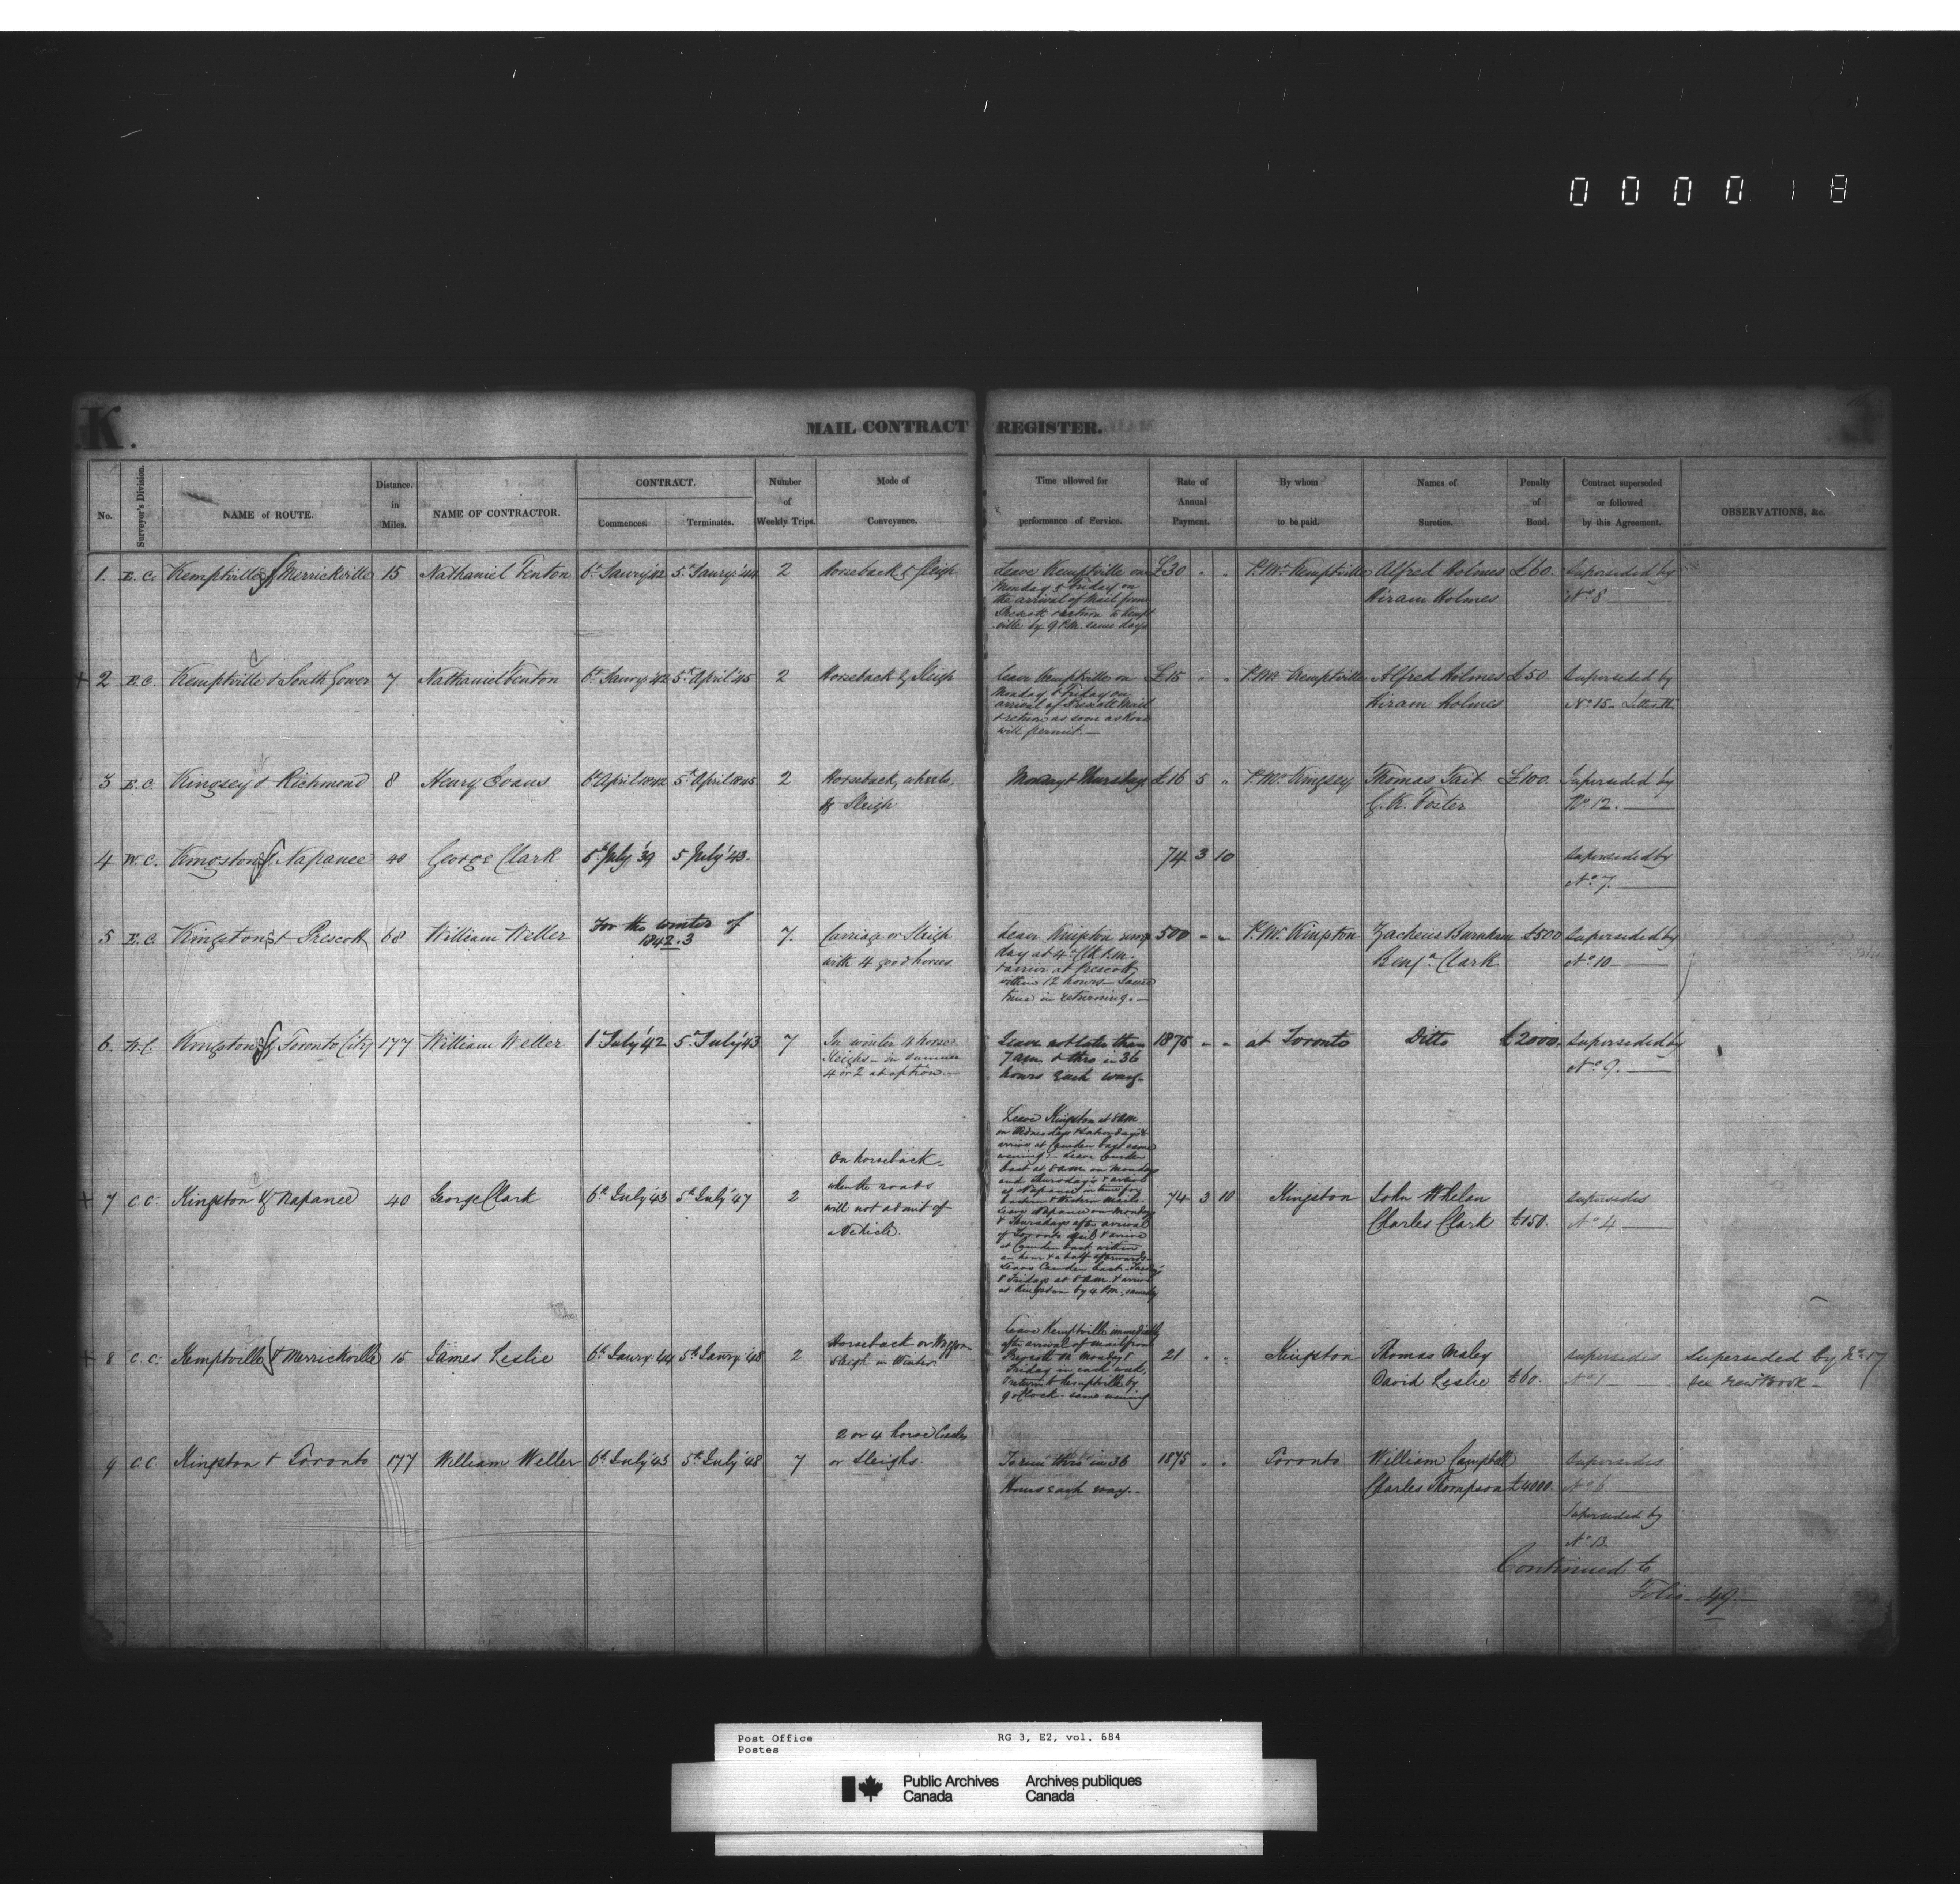 000018
K.
MAIL CONTRACT REGISTER.
No. Surveyor's Division. NAME of ROUTE. Distance in Miles. NAME OF CONTRACTOR. CONTRACT. Commences. Terminates. Number of Weekly Trips. Mode of Conveyance. Time allowed for performance of Service. Rate of Annual Payment. By whom to be paid. Names of Sureties. Penalty of Bond. Contract superseded or followed by this Agreement. OBSERVATIONS, &c.
1. E.C. Kemptville & Merrickville 15 Nathaniel Fenton 6th Janry '42 5th Janry '44 2 Horseback & Sleigh Leave Kemptville on £30 " " P.Mr Kemptville Alfred Holmes £60. Superseded by
Monday & Friday on Hiram Holmes No 8
the arrival of Mail from
Prescott & return to Kempt
ville by 9 P.M. same days
+ 2 E.C. Kemptville & South Gower 7 Nathaniel Fenton 6th Janry '42 5th April '45 2 Horseback & Sleigh Leave Kemptville on £15 " " P.Mr Kemptville Alfred Holmes £50. Superseded by
Monday & Friday on Hiram Holmes No 15 - Letter
arrival of Prescott Mail
& return as soon as Roads
will permit. —
3 E.C. Kingsey & Richmond 8 Henry Evans 6th April 1842 5th April 1845 2 Horseback, wheels, Monday & Thursday £16 5 " P.Mr Kingsey Thomas Tait £100. Superseded by
or Sleigh C. K. Foster No 12.
4 W.C. Kingston & Napanee 40 George Clark 5th July '39 5 July '43. 74 3 10 Superseded by
No 7.
5 E.C. Kingston & Prescott 68 William Weller For the winter of 1842.3 7. Carriage or Sleigh Leave Kingston every 500 - - P.Mr Kingston Zacheus Burnham £500 Superseded by
with 4 good horses day at 4 P.M. Benjn Clark No 10
& arrive at Prescott
within 12 hours - Same
time in returning. —
6. W.C. Kingston & Toronto City 177 William Weller 6th July '42 5th July '43 7 In winter 4 horse Leave not later than 1875 - - at Toronto Ditto £2000. Superseded by
Sleighs - in summer 7 am & thro in 36 No 9.
4 or 2 at option. hours each way -
+ 7 C.C. Kingston & Napanee 40 George Clark 6th July '43 5th July '47 2 On horseback - 74 3 10 Kingston John Whelan Supersedes
when the roads Charles Clark £150. No 4
will not admit of
a Vehicle.
Leave Kingston at 8 am
on Wednesdays & Saturdays &
arrive at Camden East same
evening. - Leave Camden
East at 8 am on Mondays
and Thursdays & arrive
at Napanee in time for
Eastern & Western Mails.
Leave Napanee on Mondays
& Thursdays after arrival
of Toronto Mail & arrive
at Camden East within
an hour & a half afterwards -
Leave Camden East Tuesdays
& Fridays at 8 am & arrive
at Kingston by 4 P.M. same day
+ 8 C.C. Kemptville & Merrickville 15 James Leslie 6th Janry '44 5th Janry '48 2 Horseback or Waggon 21 " " Kingston Thomas Maley Supersedes Superseded by No 17
Sleigh in Winter David Leslie £60. No 1 see new Book -
Leave Kemptville immediately
after arrival of mail from
Prescott on Monday &
Friday in each week,
& return to Kemptville by
9 o'clock same evening
9 C.C. Kingston & Toronto 177 William Weller 6th July '43 5th July '48 7 2 or 4 horse Coaches To run thro' in 36 1875 " " Toronto William Campbell Supersedes
or Sleighs Hours each way. - Charles Thompson £4000. No 6
Superseded by
No 13
Continued to
Folio 49
Post Office RG 3, E2, vol. 684
Postes
Public Archives Archives publiques
Canada Canada